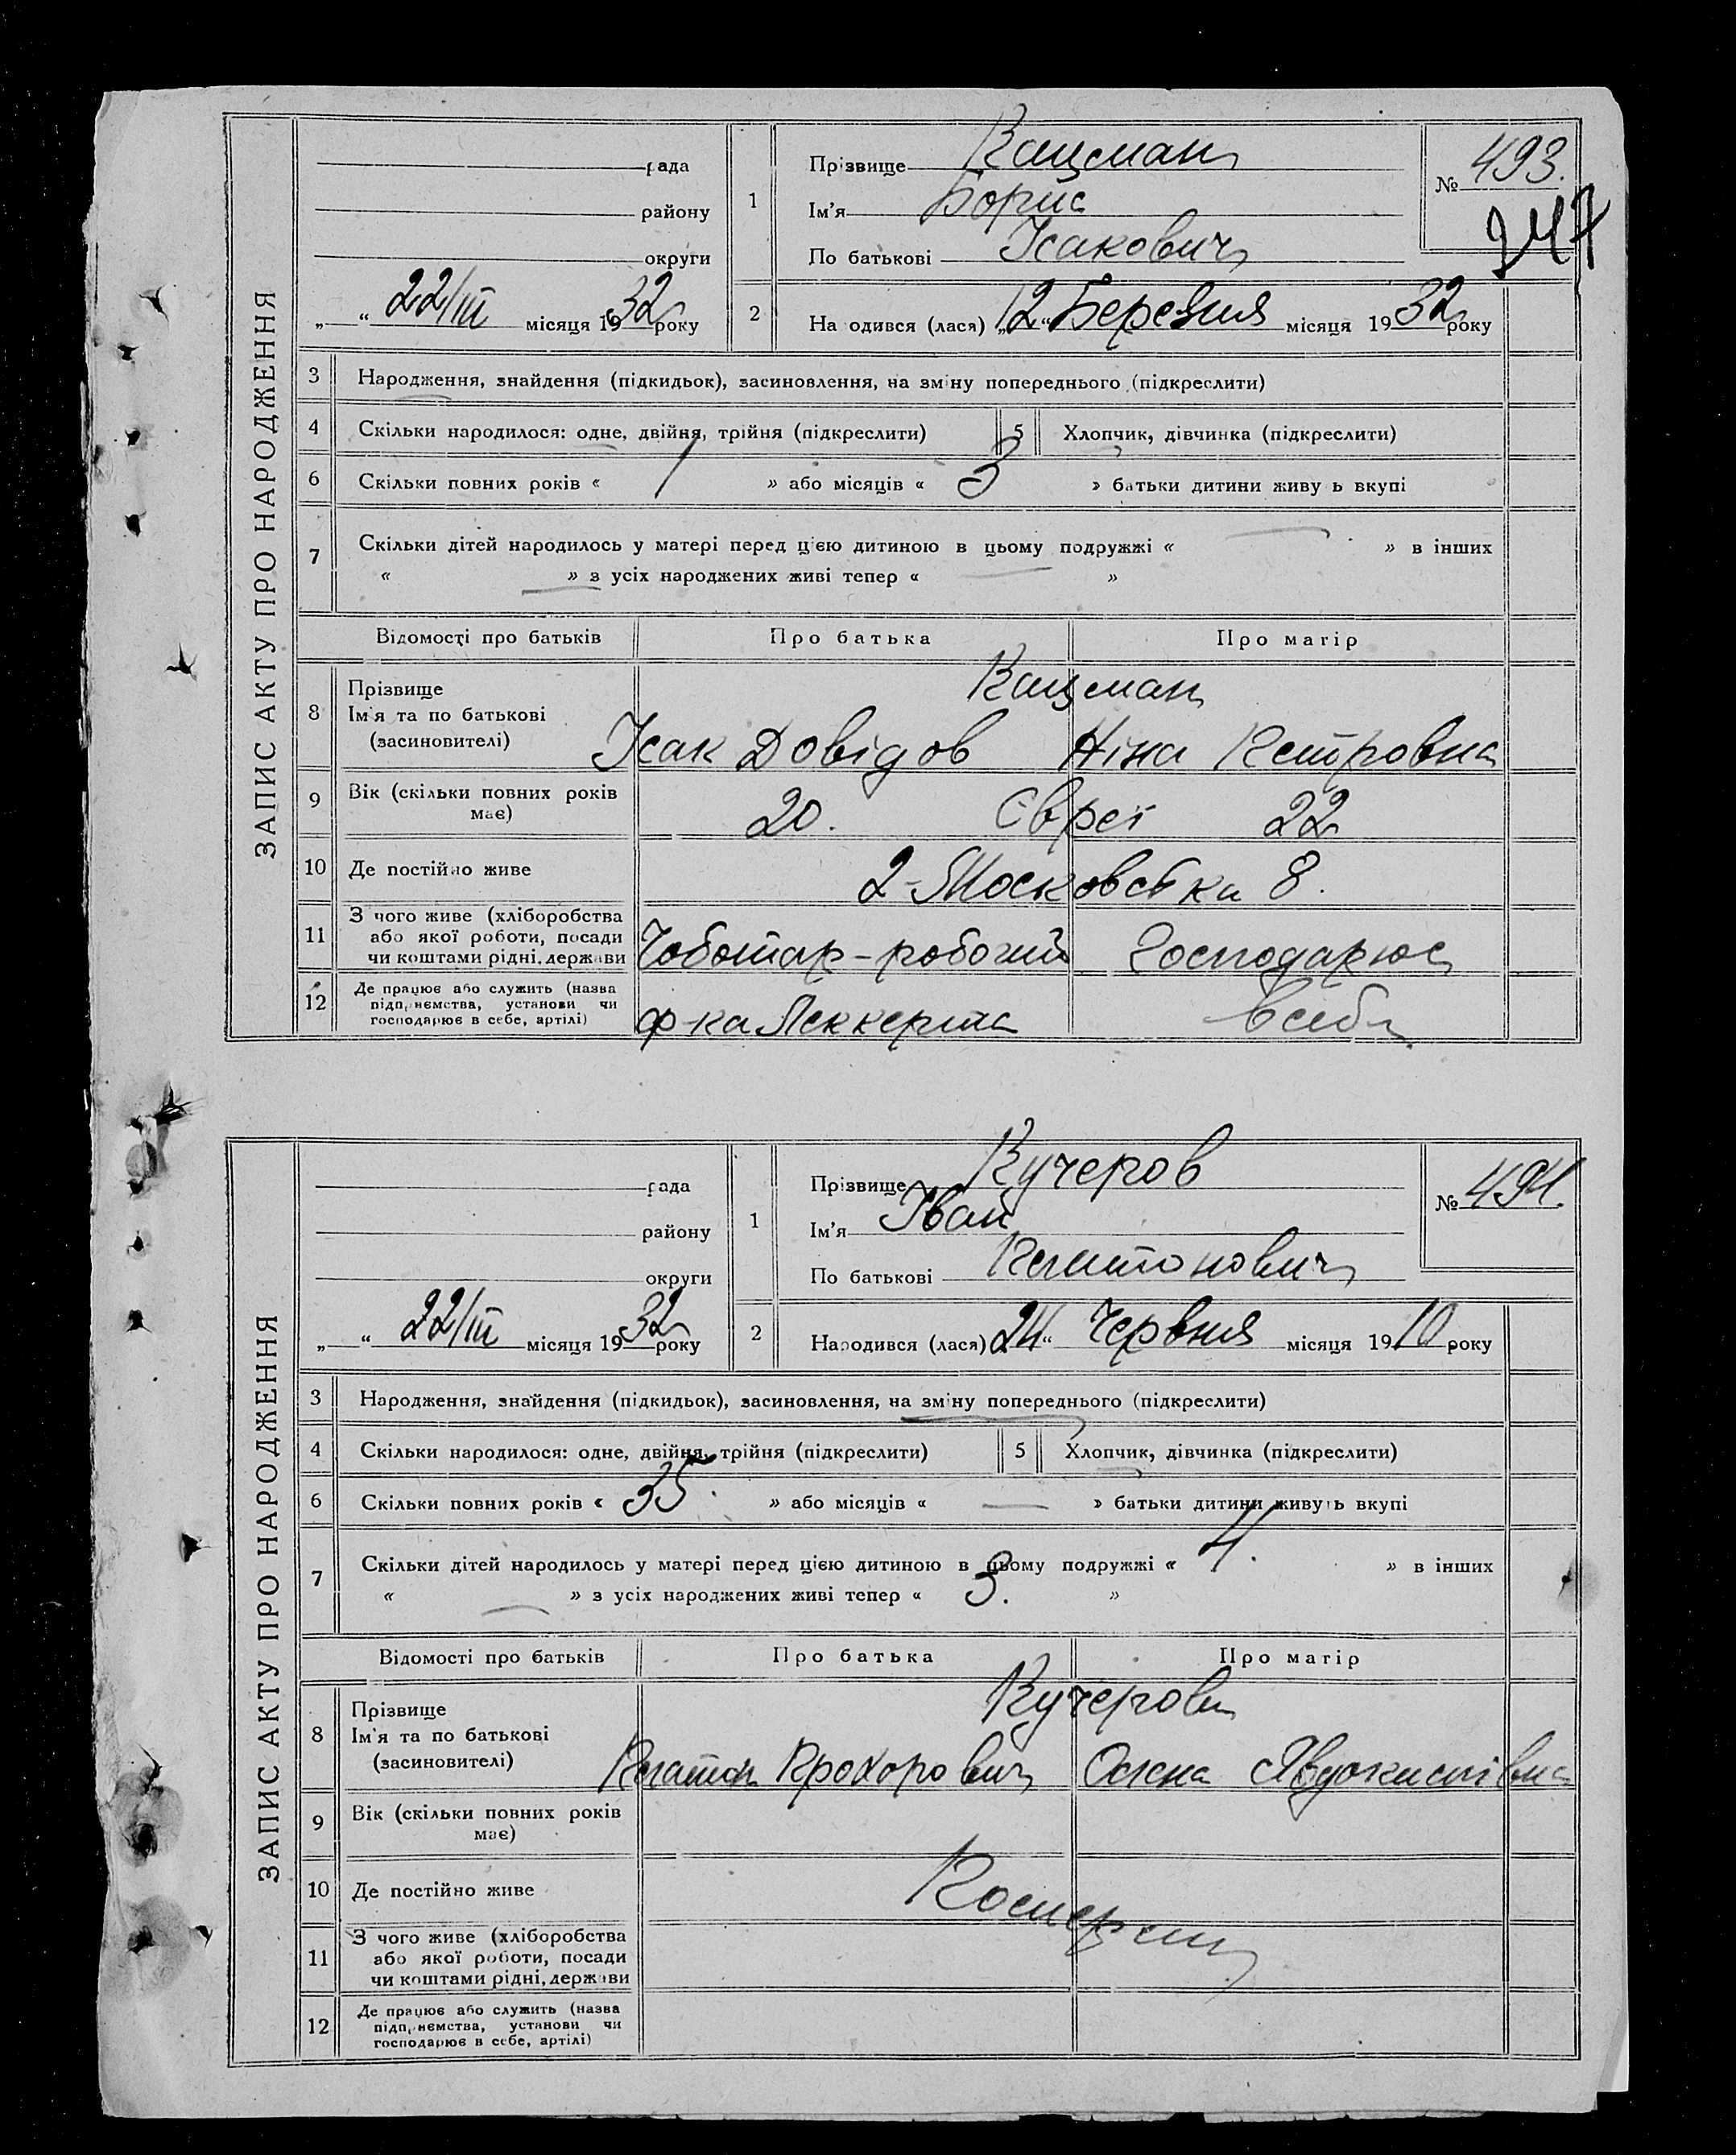 ЗАПИС АКТУ ПРО НАРОДЖЕННЯ
рада
району
округи
„ “ 22/III місяця 1932 року
1
Прізвище Кацман
Ім'я Борис
По батькові Ісакович
№ 493.
247
2 На одився (лася) „12“ Березня місяця 1932 року
3 Народження, знайдення (підкидьок), засиновлення, на зміну попереднього (підкреслити)
4 Скільки народилося: одне, двійня, трійня (підкреслити)
5 Хлопчик, дівчинка (підкреслити)
6 Скільки повних років « 1 » або місяців « 3 » батьки дитини живу ь вкупі
7 Скільки дітей народилось у матері перед цією дитиною в цьому подружжі « — » в інших
« — » з усіх народжених живі тепер « — »
Відомості про батьків Про батька Про матір
8 Прізвище Кацман
Ім'я та по батькові
(засиновителі) Ісак Довідов Ніна Петровна
9 Вік (скільки повних років має) 20. Євреї 22
10 Де постійно живе 2-Московська 8.
11 З чого живе (хліборобства
або якої роботи, посади
чи коштами рідні, держави Чоботар-робочий Господарює
12 Де працює або служить (назва
підприємства, установи чи
господарює в себе, артілі) ф-ка Леккерта в себе
ЗАПИС АКТУ ПРО НАРОДЖЕННЯ
рада
району
округи
„ “ 22/III місяця 1932 року
1
Прізвище Кучеров
Ім'я Іван
По батькові Платонович
№ 494.
2 Народився (лася) 24“ Червня місяця 1910 року
3 Народження, знайдення (підкидьок), засиновлення, на зміну попереднього (підкреслити)
4 Скільки народилося: одне, двійня, трійня (підкреслити)
5 Хлопчик, дівчинка (підкреслити)
6 Скільки повних років « 35. » або місяців « — » батьки дитини живуть вкупі
7 Скільки дітей народилось у матері перед цією дитиною в цьому подружжі « 4. » в інших
« — » з усіх народжених живі тепер « 3. »
Відомості про батьків Про батька Про матір
8 Прізвище Кучерови
Ім'я та по батькові
(засиновителі) Платон Прохорович Олена Явдокимівна
9 Вік (скільки повних років має)
10 Де постійно живе
11 З чого живе (хліборобства
або якої роботи, посади
чи коштами рідні, держави
12 Де працює або служить (назва
підприємства, установи чи
господарює в себе, артілі)